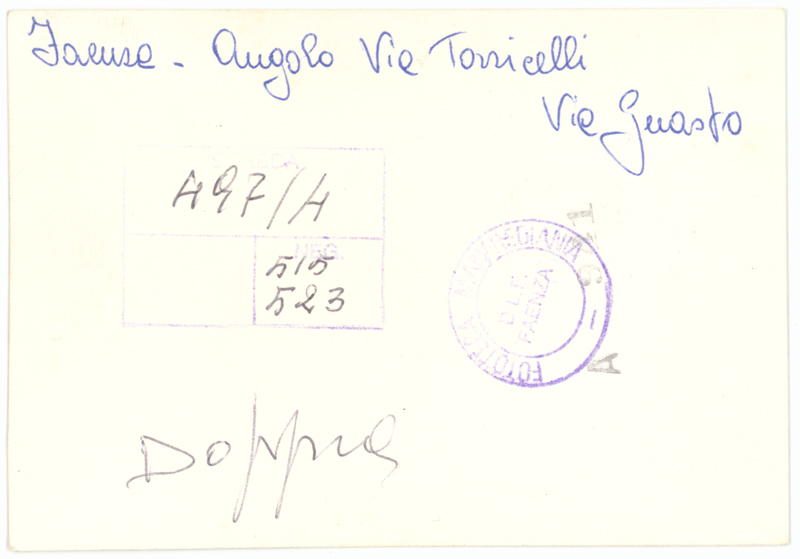 Faenza - Angolo Via Torricelli
Via Guasto
497/A
NEG.
515
523
FOTOTECA MANFREDIANA
D.L.F.
FAENZA
Doppia